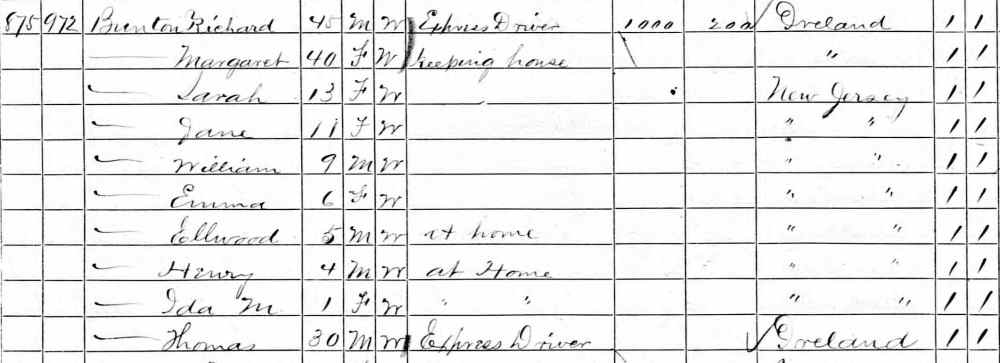 875 972 Bunton Richard 45 M W Express Driver 1000 200 Ireland 1 1
— Margaret 40 F W Keeping house " 1 1
— Sarah 13 F W New Jersey 1 1
— Jane 11 F W " " 1 1
— William 9 M W " " 1 1
— Emma 6 F W " " 1 1
— Ellwood 5 M W at home " " 1 1
— Henry 4 M W at Home " " 1 1
— Ida M. 1 F W " " " " 1 1
— Thomas 30 M W Express Driver Ireland 1 1